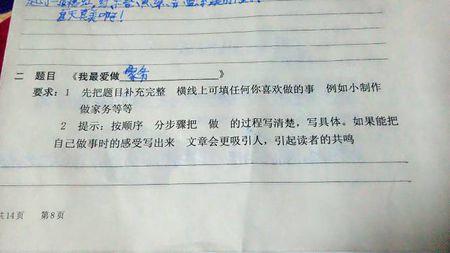 二 题目 《我最爱做 家务 》
要求：1 先把题目补充完整 横线上可填任何你喜欢做的事 例如小制作
做家务等等
2 提示：按顺序 分步骤把 做 的过程写清楚，写具体。如果能把
自己做事时的感受写出来 文章会更吸引人，引起读者的共鸣
共14页 第8页